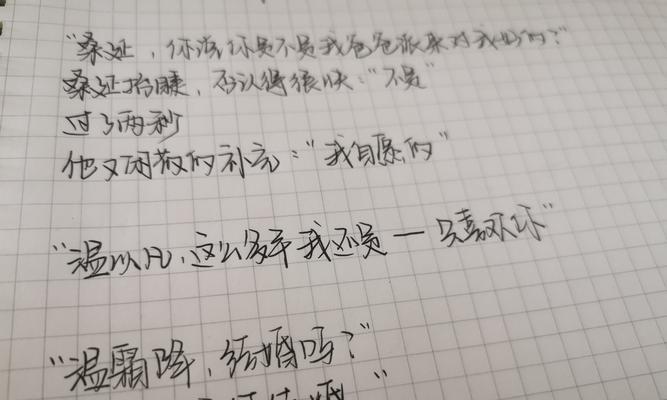 “桑延,你说你是不是我爸爸派来对我好的?”
桑延抬睫,否认得很快:“不是”
过了两秒
他又闲散的补充:“我自愿的”
“温以凡,这么多年我还是一只喜欢你”
“温霜降,结婚吗?”
婚”